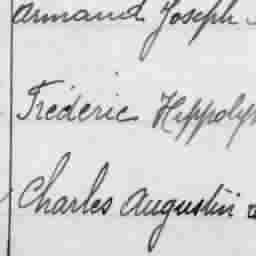 Armand Joseph
Fréderic Hippoly
Charles Augustin